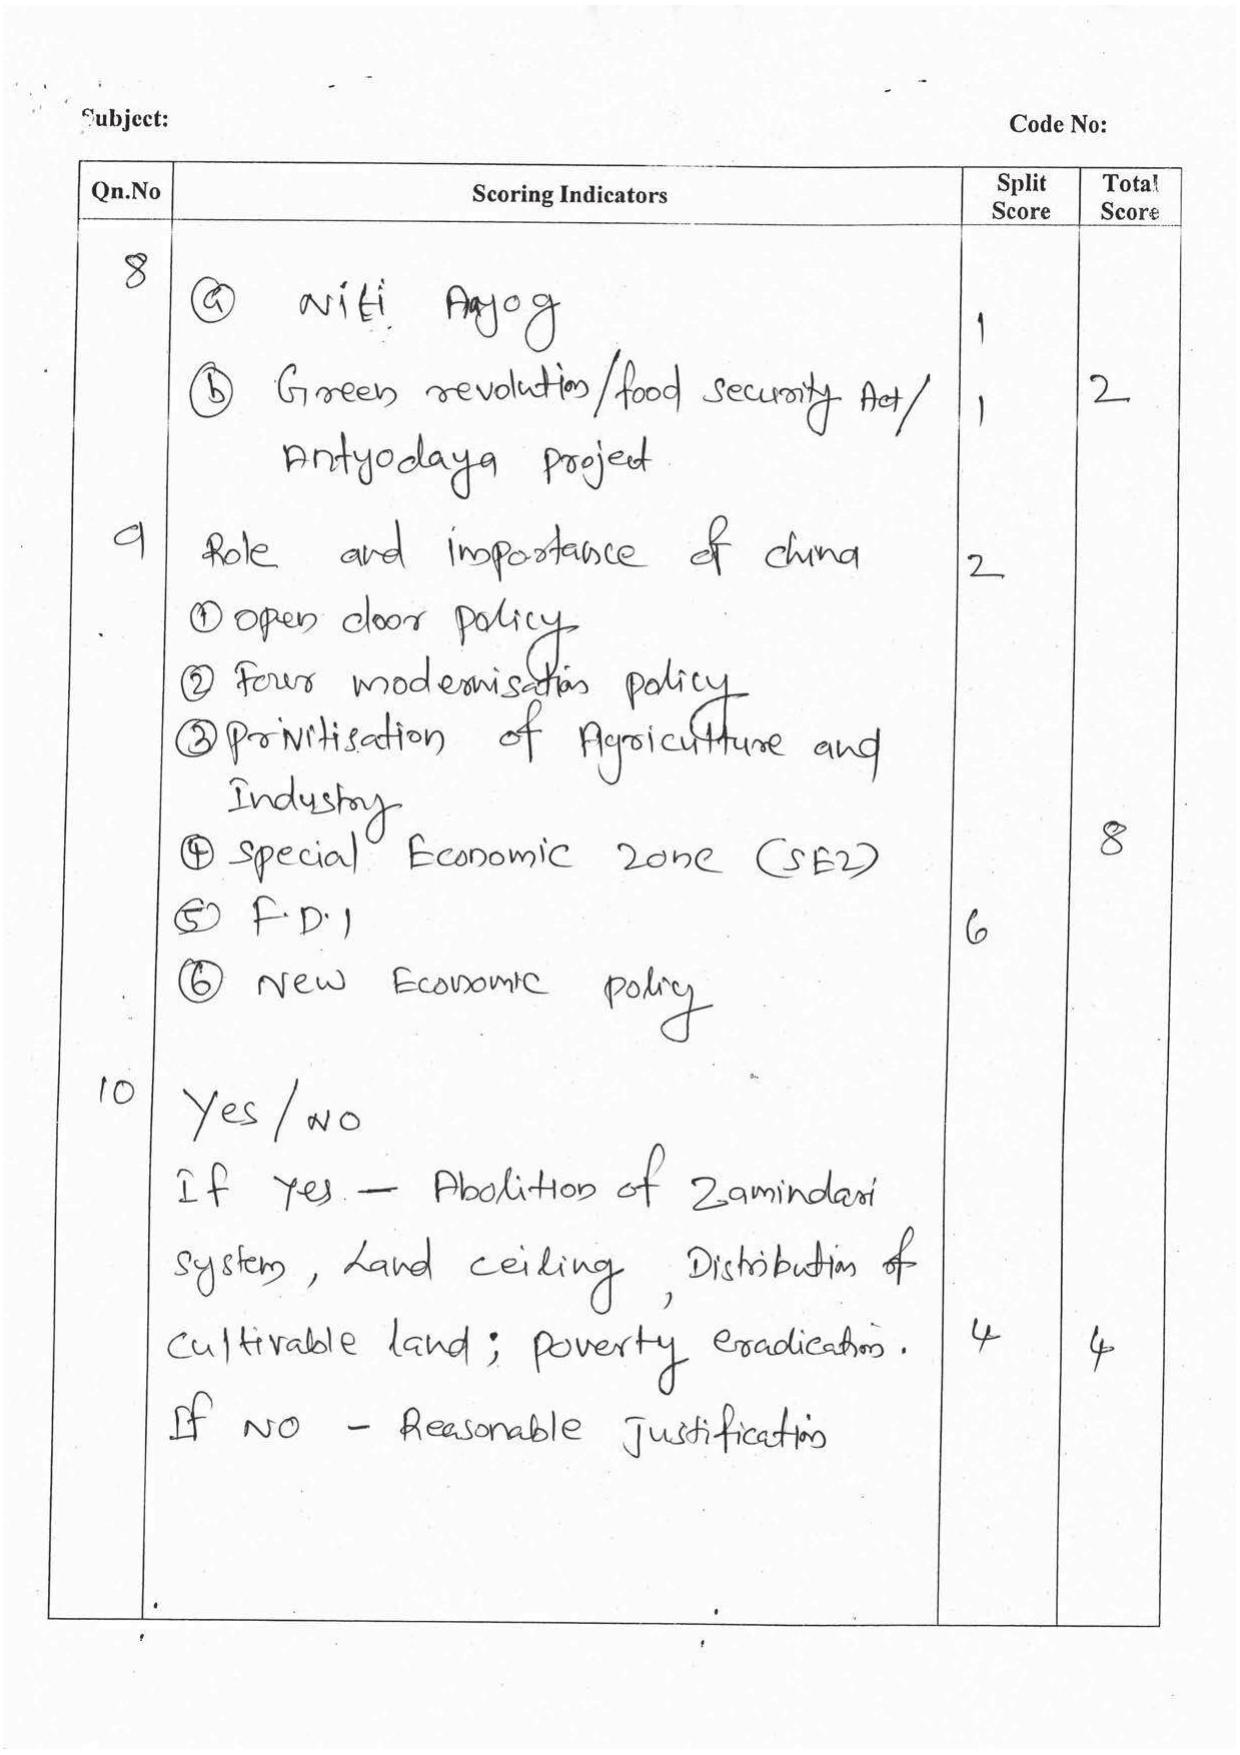 Subject:
Code No:
Qn.No Scoring Indicators Split Score Total Score
8 (a) Niti Aayog 1
(b) Green revolution/food security Act/ 1 2
Antyodaya project
9 Role and importance of china 2
(1) open door policy
(2) Four modernisation policy
(3) Privitisation of Agriculture and
Industry
(4) special Economic zone (SEZ) 8
(5) F.D.I 6
(6) New Economic policy
10 Yes/NO
If yes – Abolition of Zamindari
system, Land ceiling, Distribution of
cultivable land; poverty eradication. 4 4
If NO – Reasonable Justification